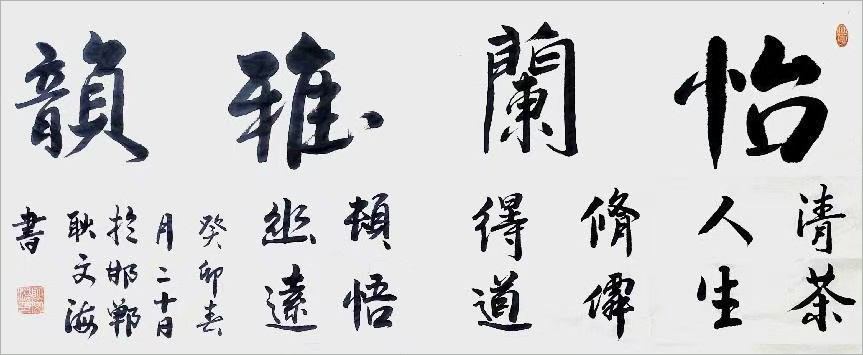 怡蘭雅韻
清茶
人生
脩
得道
頓悟
幽遠
癸卯春
月二十日
於邯鄲
耿文海
書